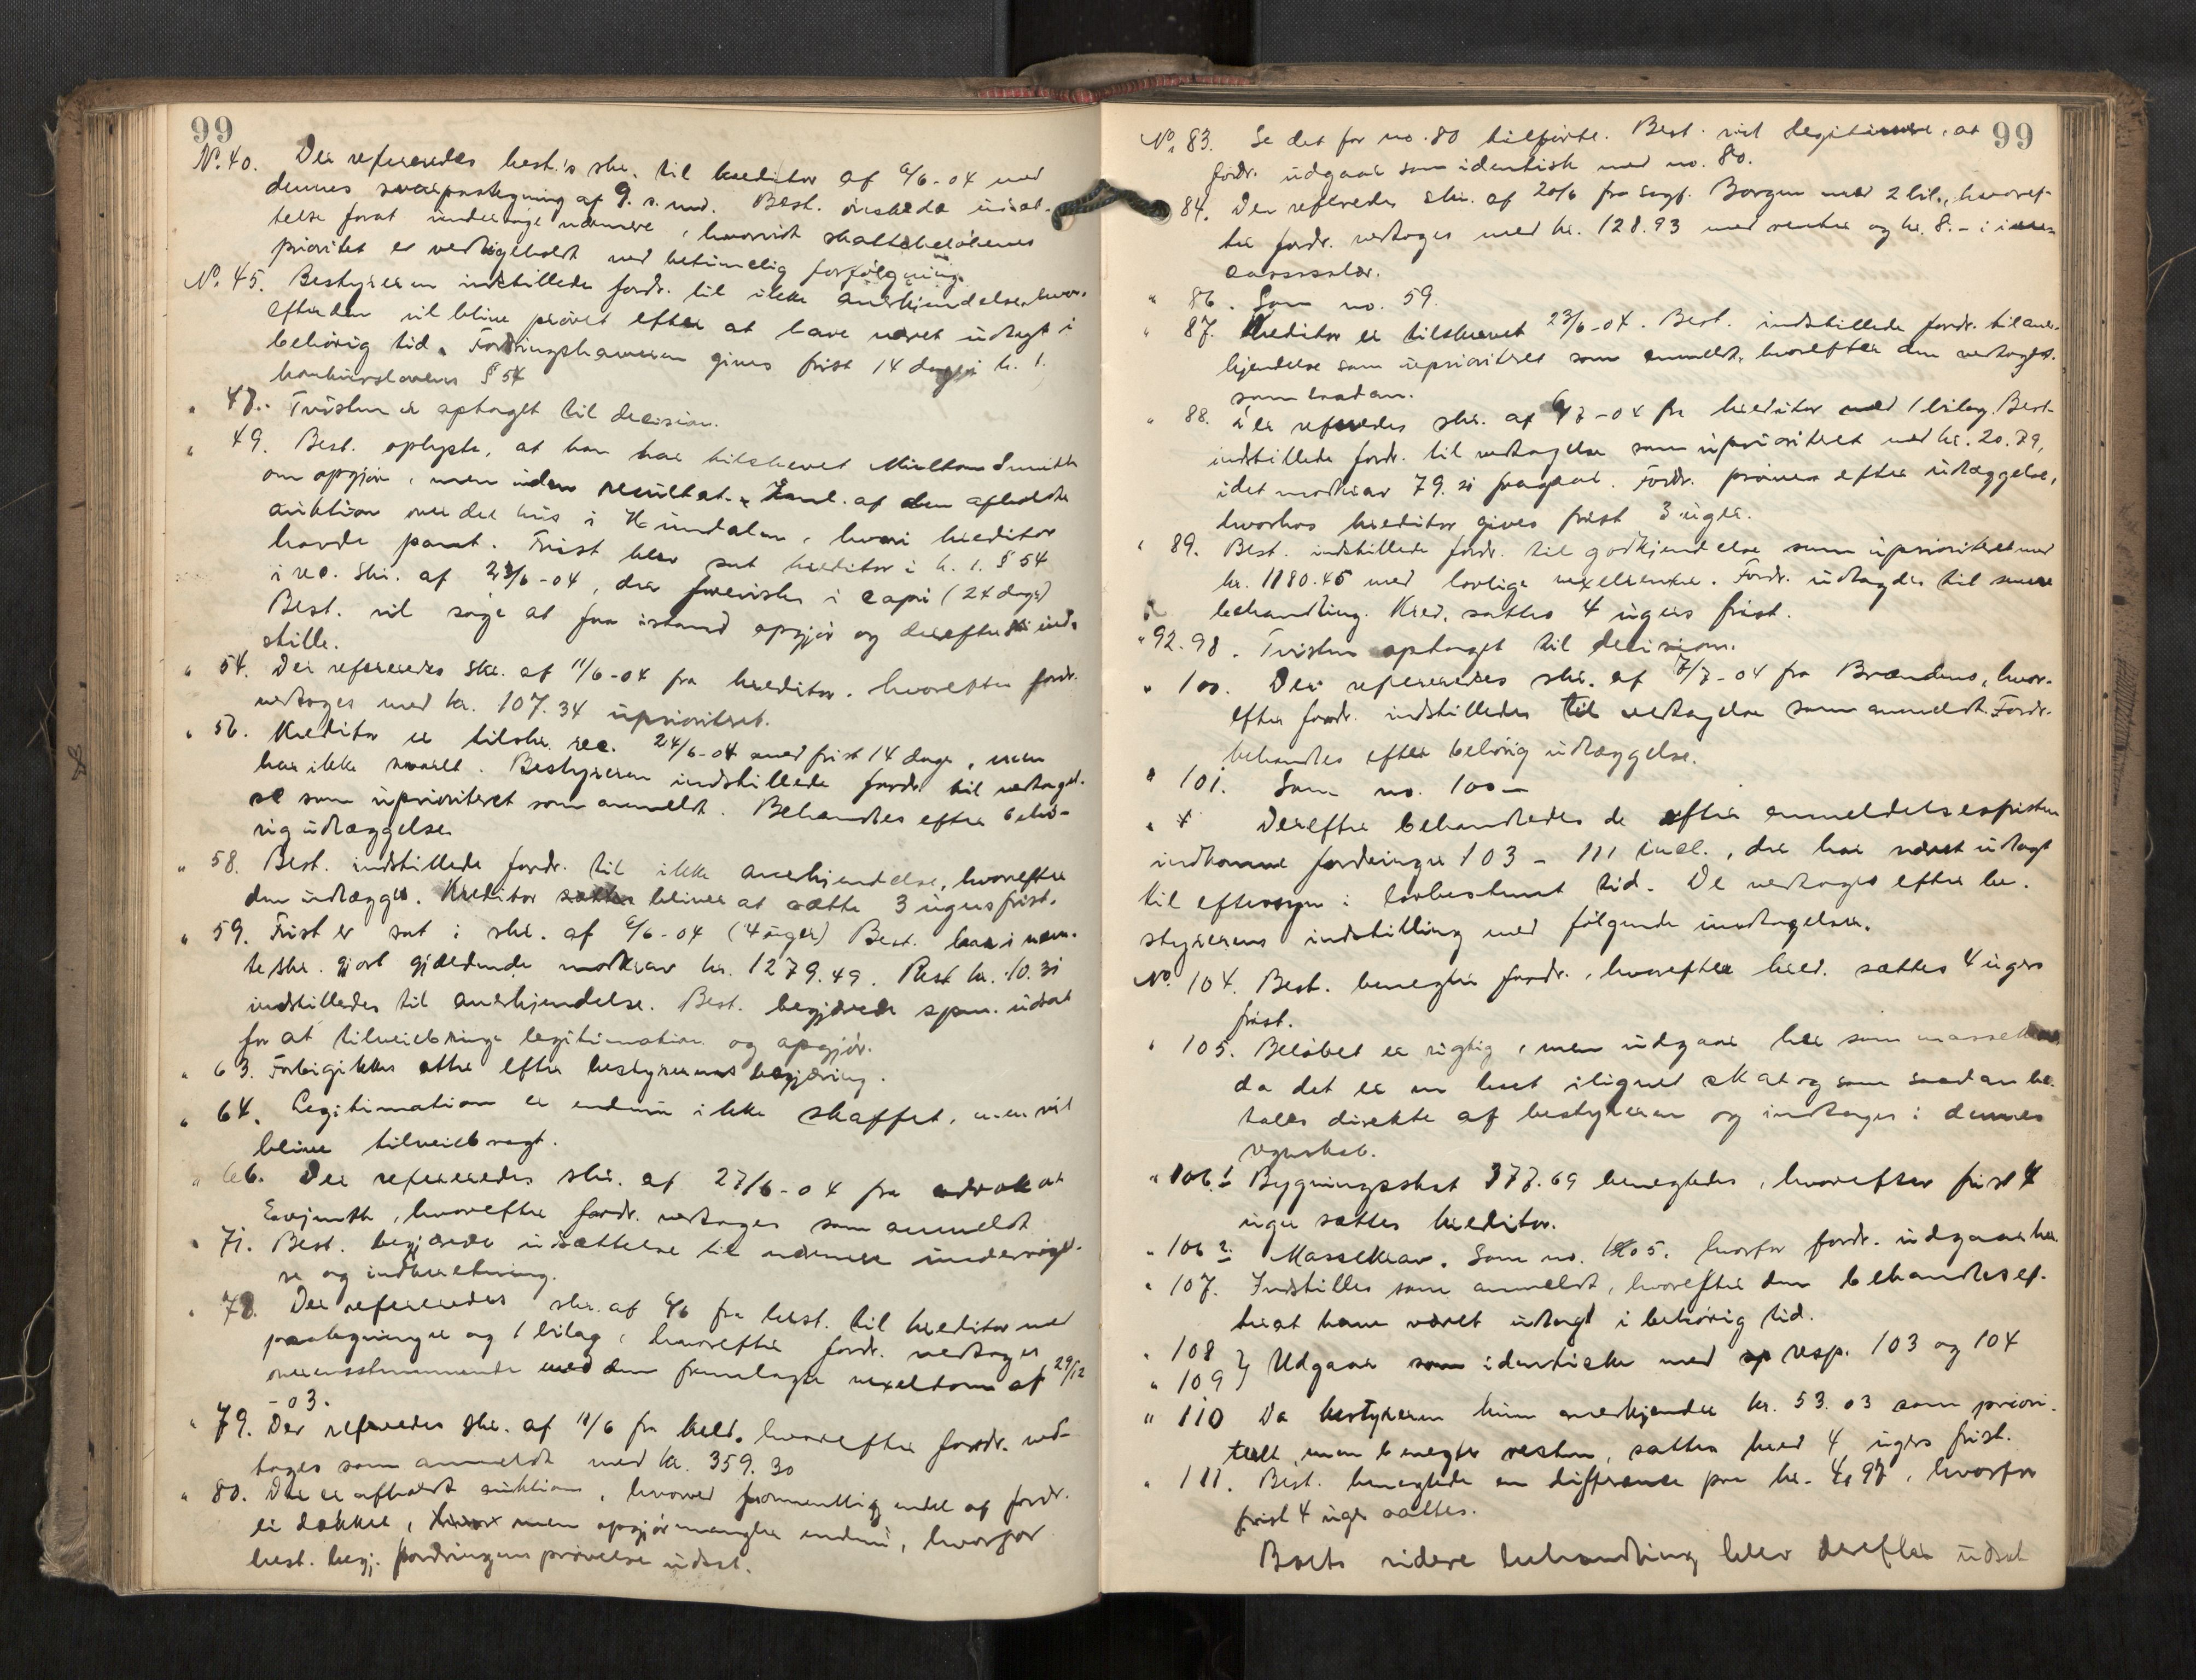 99
No. 40. Der refereredes best.'s skr. til kreditor af 6/6-04 med
dennes svarpaategning af 9. s. md. Best. ønskede udsæt-
telse forat undersøge nærmere, hvorvidt skattebeløbenes
prioritet er vedligeholdt ved betimelig forfølgning.
No. 45. Bestyreren indstillede fordr. til ikke anerkjendelse, hvor-
efter den vil blive prøvet efter at have været udlagt i
behörig tid. Fordringshaveren gives frist 14 dage i h. t.
konkurslovens § 54
" 48. Tvisten er optaget til decision.
" 49. Best. oplyste, at han har tilskrevet Miltow Smith
om opgjør, men uden resultat. af den afholdte
auktion over det hus i Hundalen, hvori kreditor
havde pant. Frist blev sat kreditor i h. t. § 54
i rec. skr. af 23/6-04, der forevistes i copi (24 dage)
Best. vil søge at faa istand opgjør og derefter ind-
stille.
" 54. Der refereredes skr. af 11/6-04 fra kreditor, hvorefter fordr.
vedtoges med kr. 107.34 uprioriteret.
" 56. Kreditor er tilskr. rec. 24/6-04 med frist 14 dage, men
har ikke svaret. Bestyreren indstillede fordr. til vedtagel-
se som uprioriteret som anmeldt. Behandles efter behö-
rig udlæggelse.
" 58. Best. indstillede fordr. til ikke anerkjendelse, hvorefter
den udlægges. Kreditor sættes bliver at sætte 3 ugers frist.
" 59. Frist er sat i skr. af 6/6-04 (4 uger) Best. har i nævn-
te skr. gjort gjældende modkrav kr. 1279.49. Rest kr. 10.31
indstilledes til anerkjendelse. Best. begjærede spm. udsat
for at tilveiebringe legitimation og opgjör.
" 63. Forbigikkes atter efter bestyrerens begjæring.
" 64. Legitimation er endnu ikke skaffet, men vil
blive tilveiebragt.
" 66. Der refereredes skr. af 27/6-04 fra advokat
Evjenth, hvorefter fordr. vedtoges som anmeldt
" 71. Best. begjærede udsættelse til nærmere undersøgel-
se og indberetning.
" 78. Der refereredes skr. af 6/6 fra best. til kreditor med
paategninger og 1 bilag, hvorefter fordr. vedtoges
overensstemmende med den fremlagte vexeldom af 29/12
-03.
" 79. Der refereredes skr. af 11/6 fra kred. hvorefter fordr. ved-
toges som anmeldt med kr. 359.30
" 80. Der er afholdt auktion, hvorved formentlig endel af fordr.
er dækket, men opgjör mangler endnu, hvorfor
best. begj. fordringens prövelse udsat.
99
No. 83. Se det for no. 80 tilførte. Best. vil legitimere, at
fordr. udgaar som identisk med no. 80.
" 84. Der refereredes skr. af 20/6 fra sagf. Borgen med 2 bil., hvoref-
ter fordr. vedtoges med kr. 128.93 med renter og kr. 8.- i in-
cassosalær.
" 86. Som no. 59.
" 87. Kreditor er tilskrevet 23/6-04. Best. indstillede fordr. til aner-
kjendelse som uprioriteret som anmeldt, hvorefter den vedtoges
som saadan.
" 88. Der refereredes skr. af 6/7-04 fra kreditor med 1 bilag. Best.
indstillede fordr. til vedtagelse som uprioriteret med kr. 20.79,
idet modkrav 79.21 fragaar. Fordr. prøves efter udlæggelse,
hvorhos kreditor gives frist 3 uger.
" 89. Best. indstillede fordr. til godkjendelse som uprioriteret med
kr. 1180.45 med lovlige vexelrenter. Fordr. udlagdes til senere
behandling. Kred. sattes 4 ugers frist.
" 92.98. Tvisten optaget til decision.
" 100. Der refereredes skr. af 7/7-04 fra Brændens, hvor-
efter fordr. indstilledes til vedtagelse som anmeldt. Fordr.
behandles efter behörig udlæggelse.
" 101. Som no. 100.-
" * Derefter behandledes de efter anmeldelsesfristen
indkomne fordringer 103 - 111 incl., der har været udlagt
til eftersyn i lovbestemt tid. De vedtoges efter be-
styrerens indstilling med følgende undtagelser.
No. 104. Best. benegter fordr., hvorefter kred. sættes 4 ugers
frist.
" 105. Beløbet er rigtig, men udgaar her som massekrav,
da det er en havt ilignet skat og som saadan be-
tales direkte af bestyreren og indtages i dennes
regnskab.
" 106.1 Bygningsskat 377.69 benegtedes, hvorefter frist 4
uger sættes kreditor.
" 106 2. Massekrav. Som no. 105. hvorfor fordr. udgaar her.
" 107. Indstilles som anmeldt, hvorefter den behandles ef-
ter at have været udlagt i behörig tid.
" 108 } Udgaar som identiske med resp. 103 og 104
" 109
" 110 Da bestyreren kun anerkjender kr. 53.03 som priori-
teret, men benegter resten, sattes kred 4 ugers frist.
" 111. Best. benegtede en difference paa kr. 4,97, hvorfor
frist 4 uger sattes.
Boets videre behandling blev derefter udsat